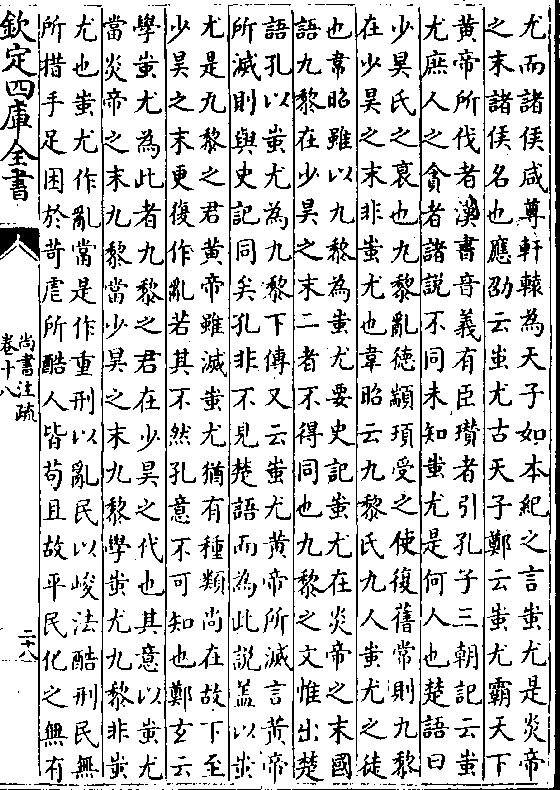 尤而諸侯咸尊軒轅為天子如本紀之言蚩尤是炎帝
之末諸侯名也應劭云蚩尤古天子鄭云蚩尤霸天下
黄帝所伐者漢書音義有臣瓚者引孔子三朝記云蚩
尤庶人之貪者諸說不同未知蚩尤是何人也楚語曰
少昊氏之衰也九黎亂徳顓頊受之使復舊常則九黎
在少昊之末非蚩尤也韋昭云九黎氏九人蚩尤之徒
也韋昭雖以九黎為蚩尤要史記蚩尤在炎帝之末國
語九黎在少昊之末二者不得同也九黎之文惟出楚
語孔以蚩尤為九黎下傳又云蚩尤黄帝所滅言黄帝
所滅則與史記同矣孔非不見楚語而為此說盖以蚩
尤是九黎之君黄帝雖滅蚩尤猶有種類尚在故下至
少昊之末更復作亂若其不然孔意不可知也鄭玄云
學蚩尤為此者九黎之君在少昊之代也其意以蚩尤
當炎帝之末九黎當少昊之末九黎學蚩尤九黎非蚩
尤也蚩尤作亂當是作重刑以亂民以峻法酷刑民無
所措手足困於苛虐所酷人皆苟且故平民化之無有
欽定四庫全書
尚書注疏
卷十八
二十八